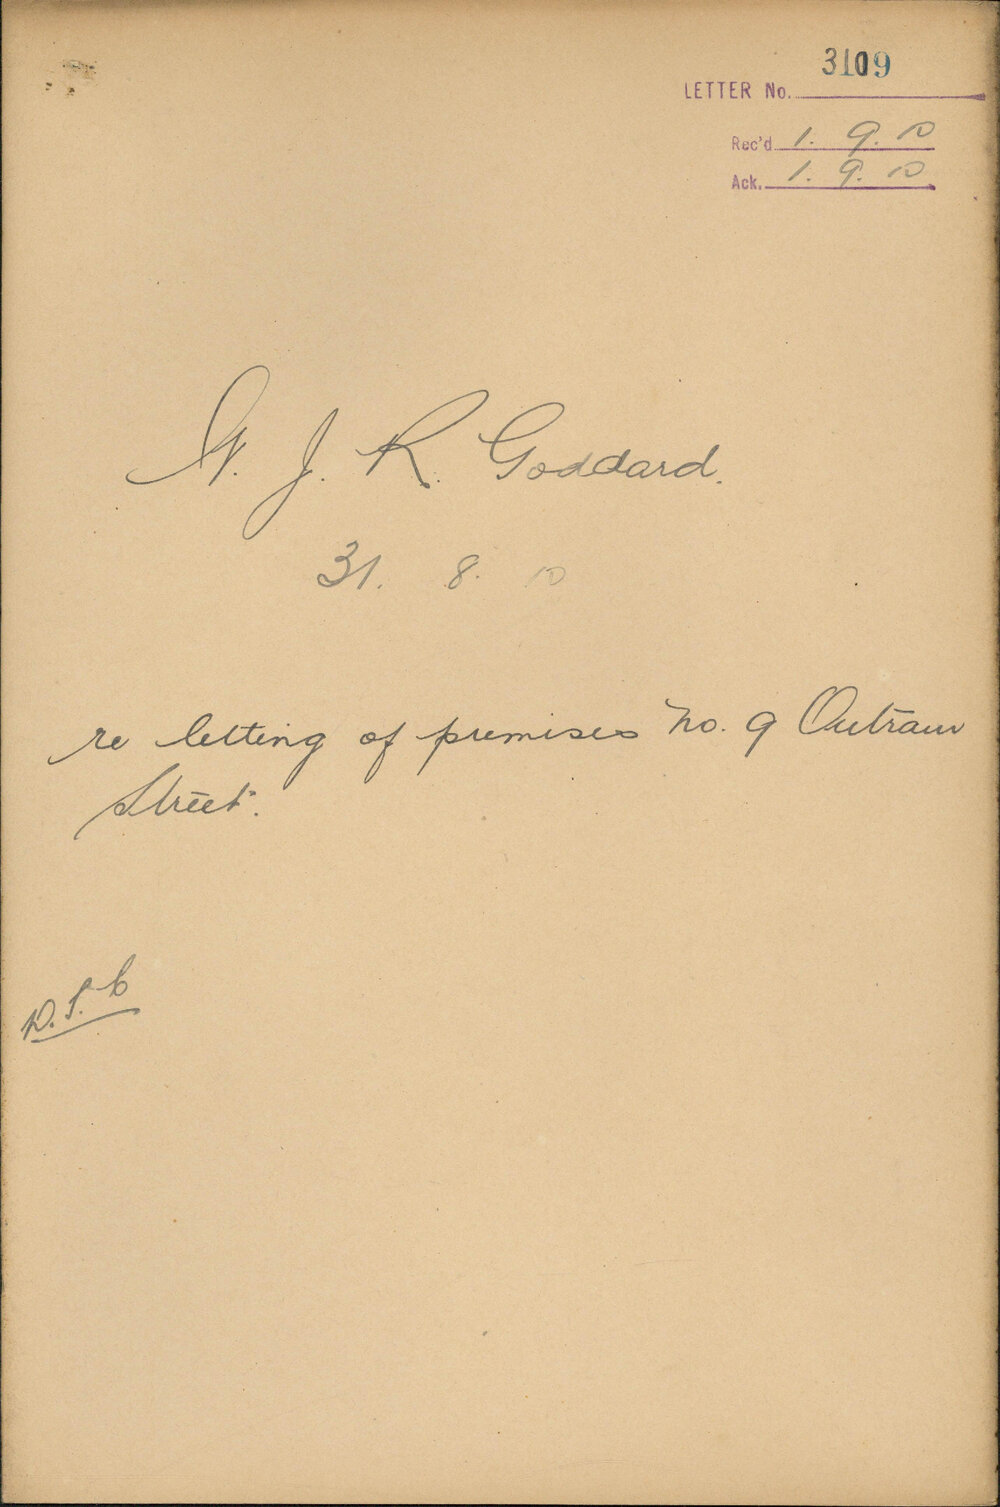 3109
LETTER No.
Rec'd 1. 9. 10
Ack. 1. 9. 10
W. J. R. Goddard.
31. 8. 10
re letting of premises No. 9 Outram
Street.